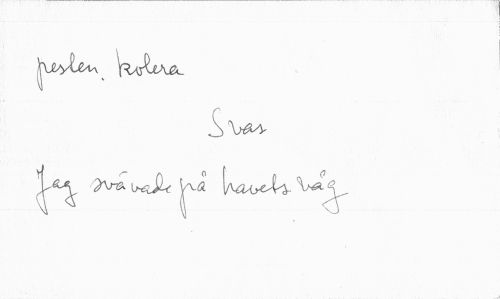 pesten. kolera
Svar
Jag svävade på havets våg